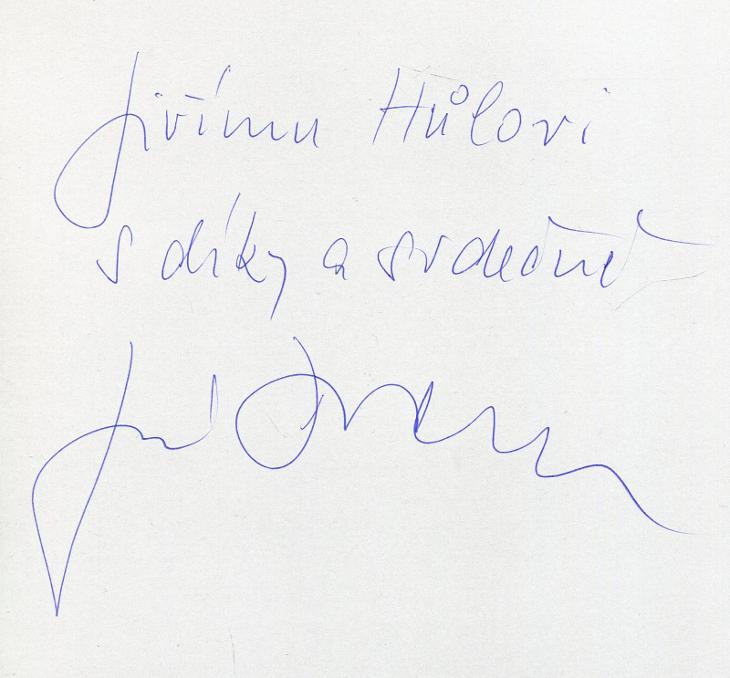 Jiřímu Hůlovi
s díky a srdečně